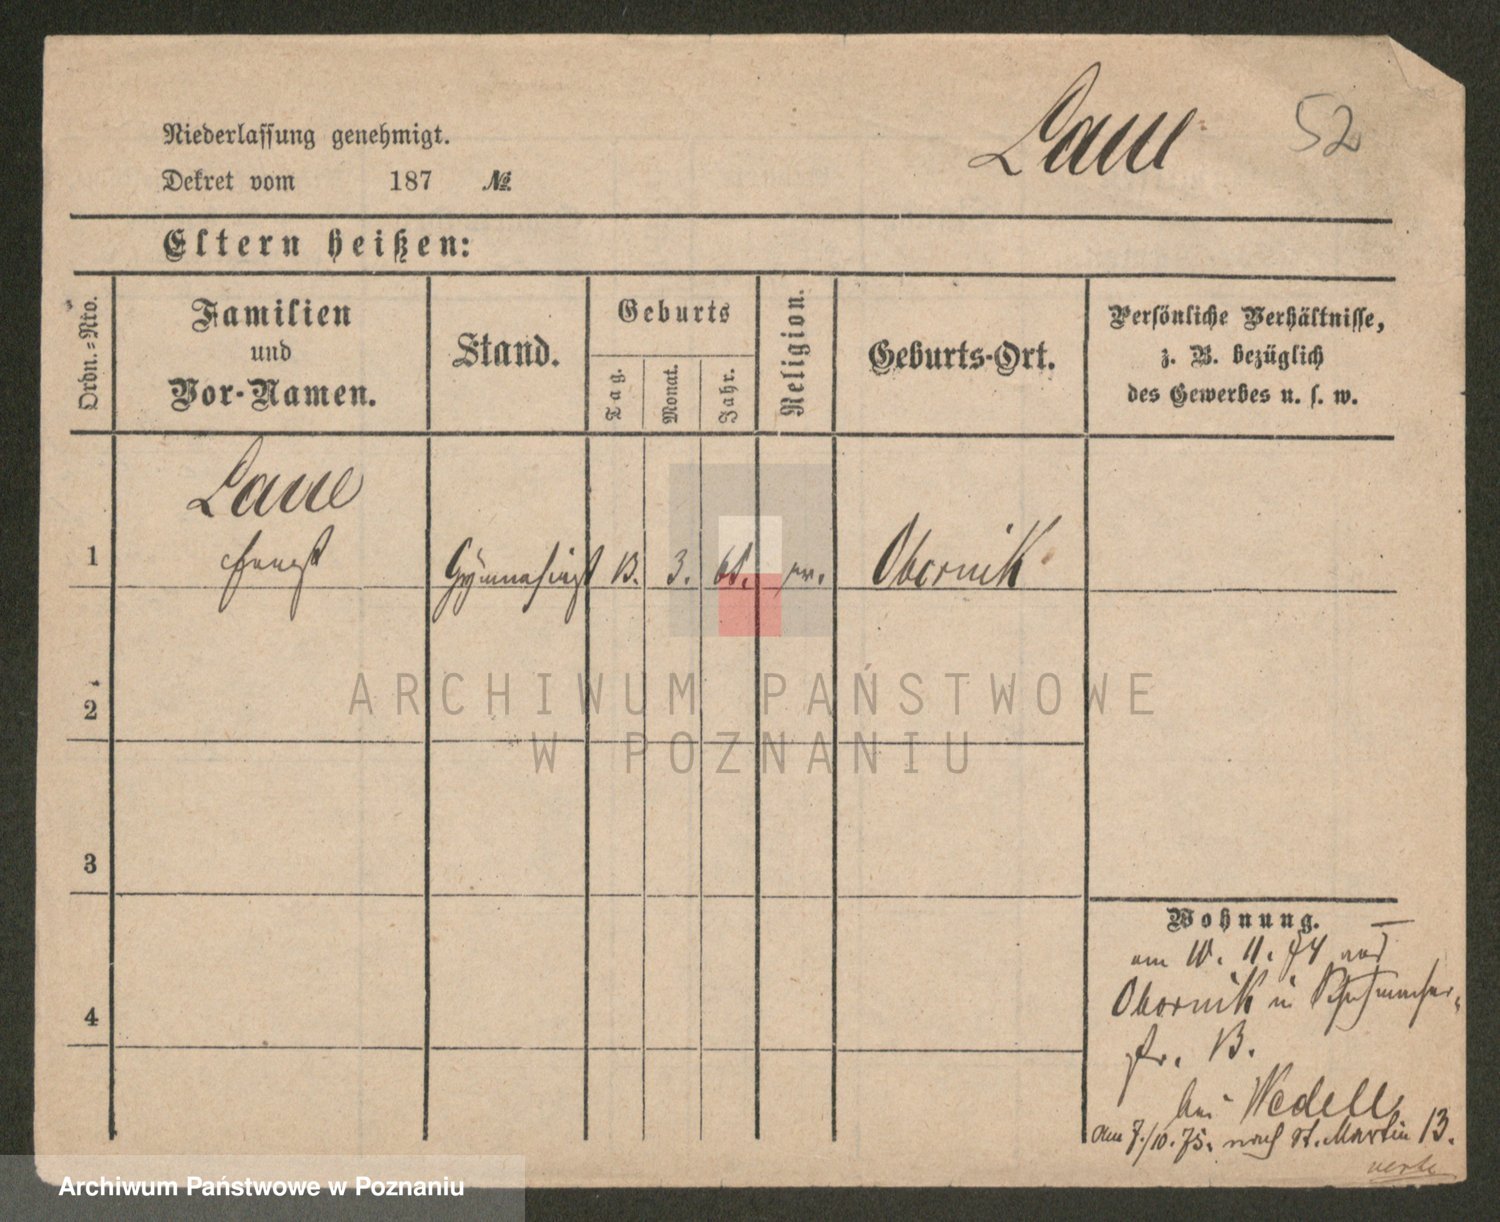 Laue 52
Niederlassung genehmigt.
Dekret vom 187 №
Eltern heißen:
Ordn.-Nro.
Familien
und
Vor-Namen.
Stand.
Geburts
Tag.
Monat.
Jahr.
Religion.
Geburts-Ort.
Persönliche Verhältnisse,
z. B. bezüglich
des Gewerbes u. s. w.
Laue
1 Ernst Gymnasiast 13. 3. ev. Obornik
2
3
4
Wohnung.
am 10. 11. 74 aus
Obornik in Schuhmacher-
str. 13.
bei Wedell
am 7./10. 75. nach St. Martin 13.
verte
ARCHIWUM PAŃSTWOWE
W POZNANIU
Archiwum Państwowe w Poznaniu